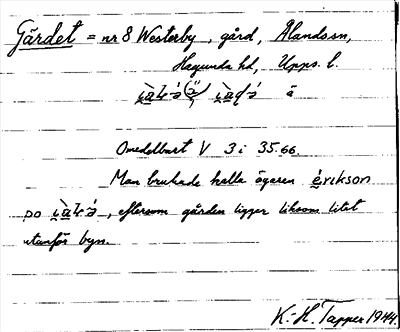 Gärdet = nr 8 Westerby, gård, Ålands sn,
Hagunda hd, Upps. l.
Omedelbart V 3 i 35.66.
Man brukade kalla ägaren erikson
po, eftersom gården ligger liksom litet
utanför byn.
K.-H. Tapper 1944.